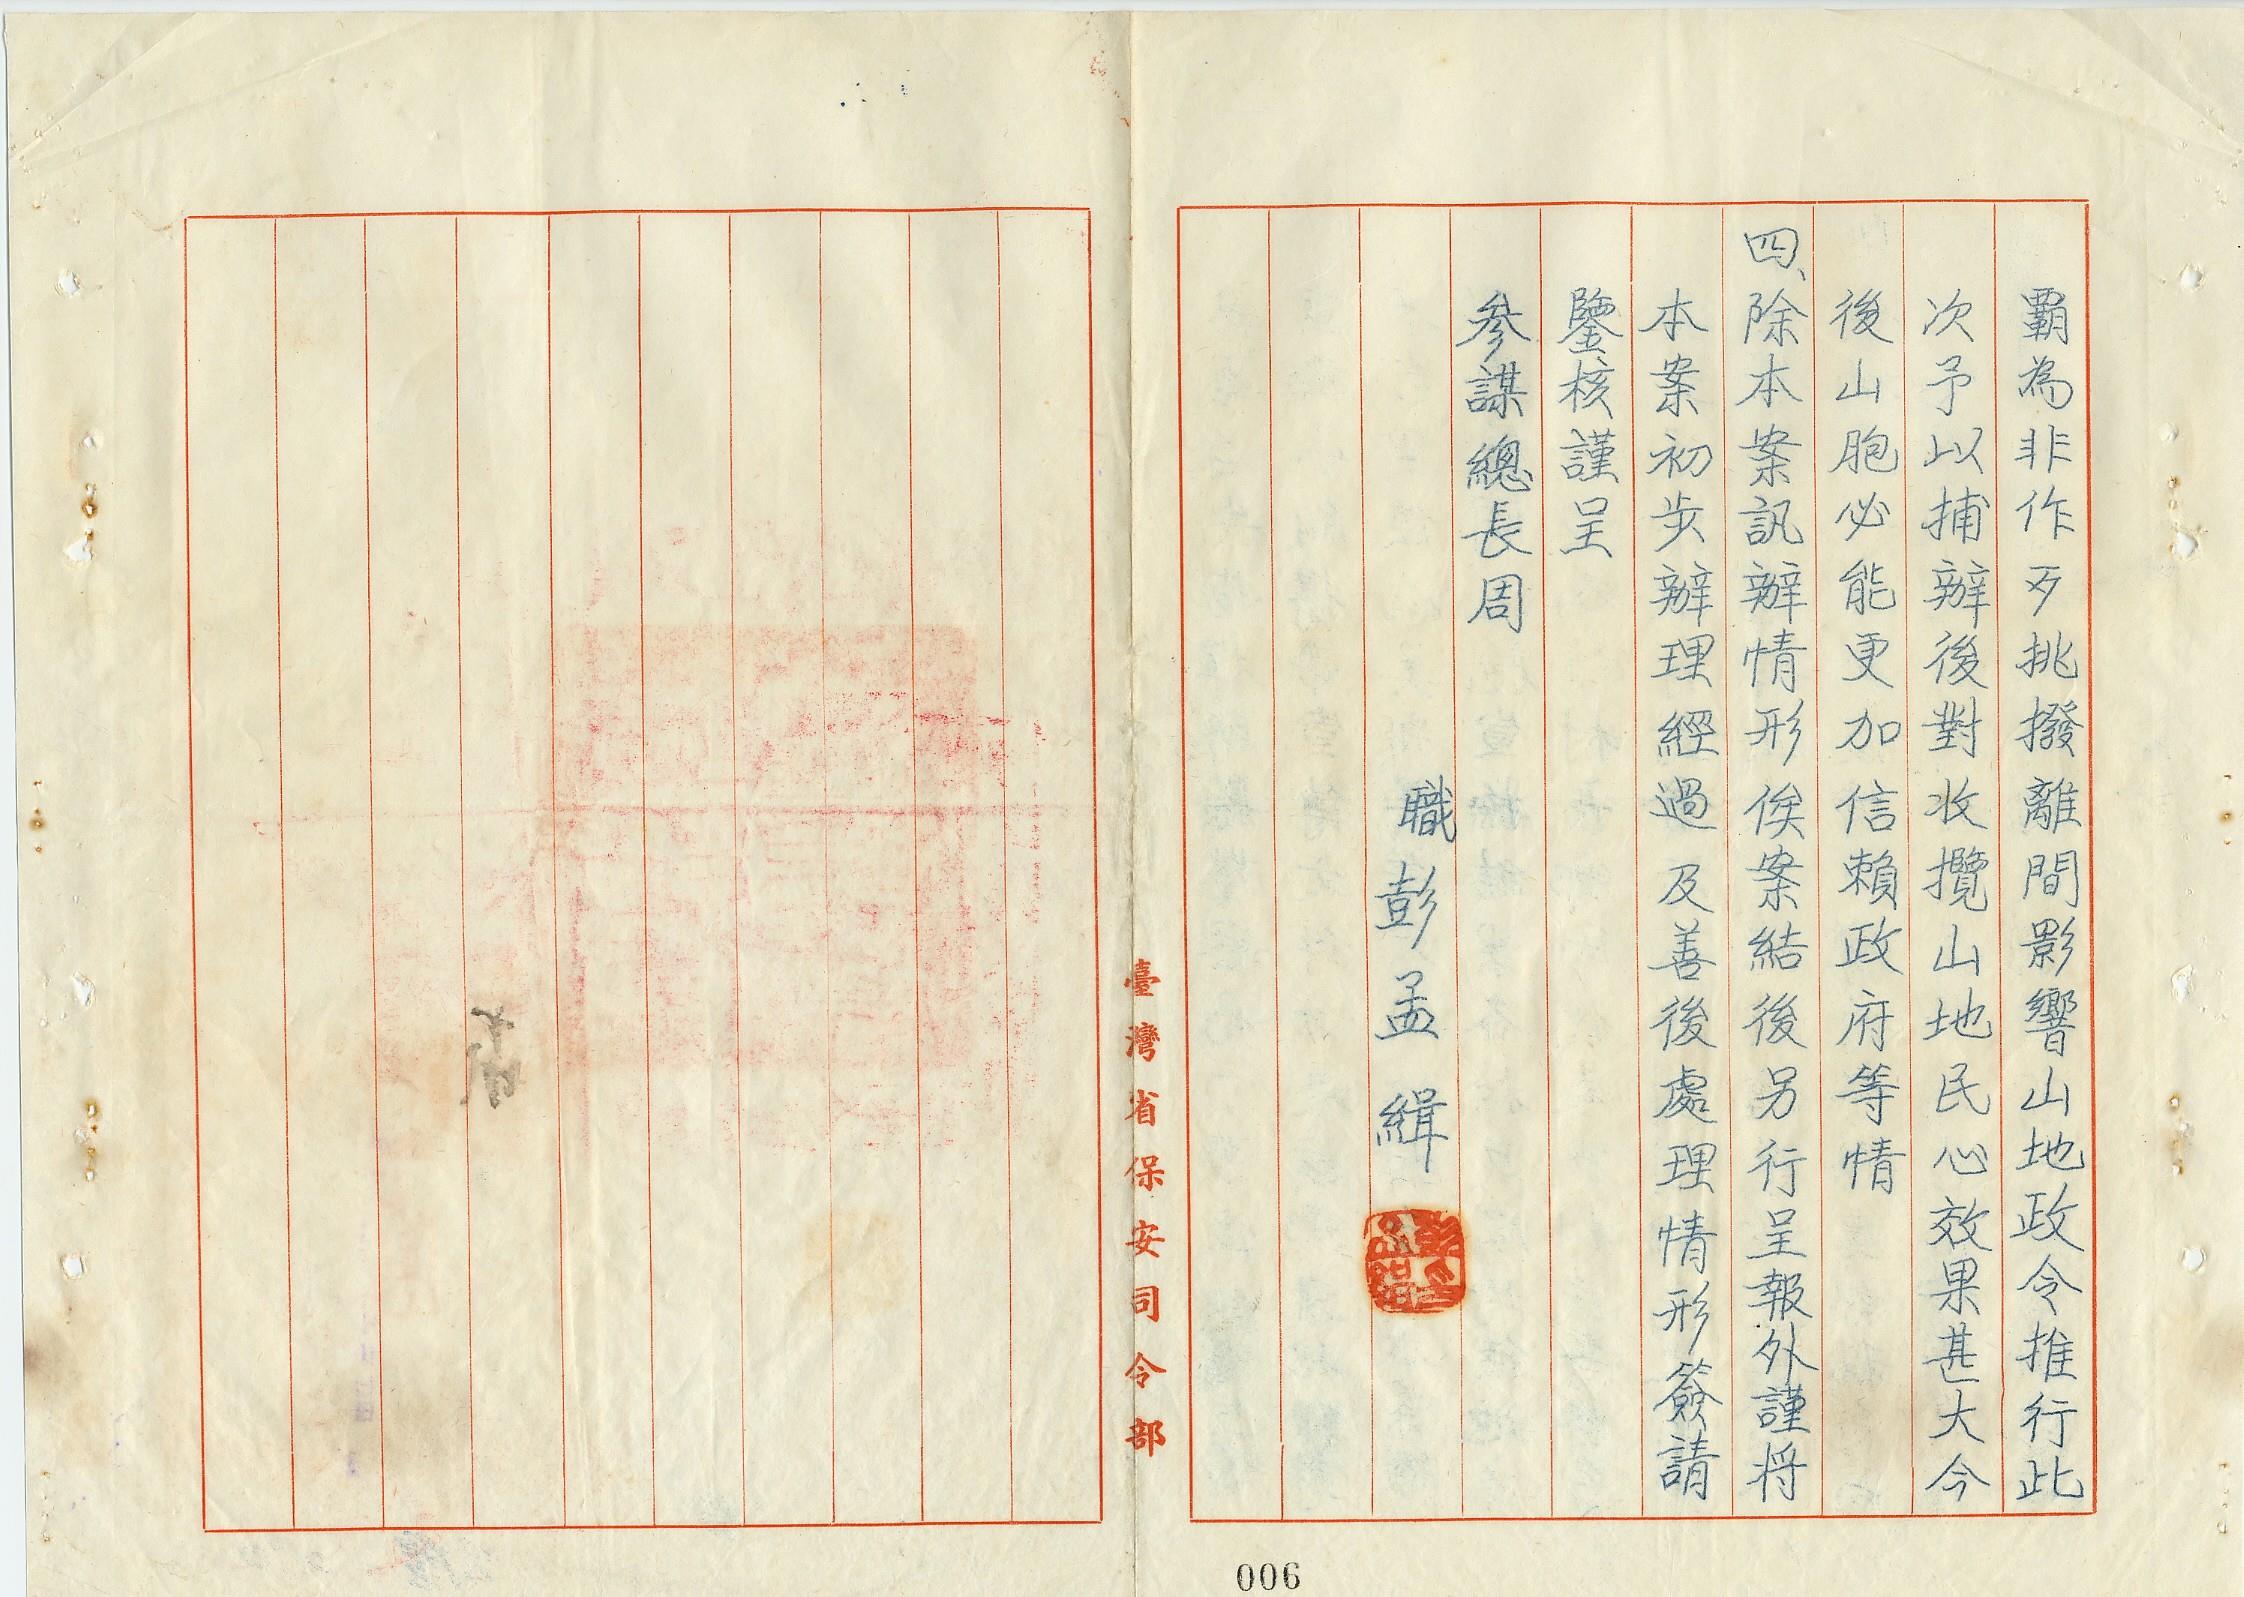 覇為非作歹挑撥離間影響山地政令推行此
次予以捕辦後對收攬山地民心效果甚大今
後山胞必能更加信賴政府等情
四、除本案訊辦情形俟案結後另行呈報外謹將
本案初步辦理經過及善後處理情形簽請
鑒核謹呈
參謀總長周
職彭孟緝
臺灣省保安司令部
006